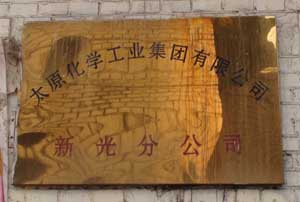 太原化学工业集团有限公司
新光分公司